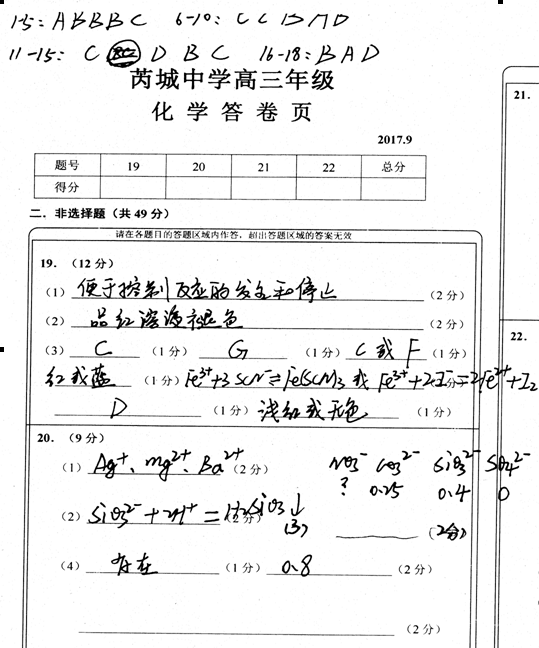 1-5: ABBBC 6-10: CCDAD
11-15: C D B C 16-18: BAD
芮城中学高三年级
化 学 答 卷 页
2017.9
题号 19 20 21 22 总分
得分
二、非选择题（共 49 分）
请在各题目的答题区域内作答，超出答题区域的答案无效
19. （12 分）
（1） 便于控制反应的发生和停止 （2 分）
（2） 品红溶液褪色 （2 分）
（3） C （1 分） G （1 分） C 或 F （1 分）
红或蓝 （1 分） Fe³⁺+3SCN⁻⇌Fe(SCN)3 或 Fe³⁺+2I⁻=2Fe²⁺+I2
D （1 分） 浅红或无色 （1 分）
20. （9 分）
（1） Ag⁺、mg²⁺、Ba²⁺ （2 分） NO3⁻ CO3²⁻ SiO3²⁻ SO4²⁻
? 0.25 0.4 0
（2） SiO3²⁻+2H⁺=H2SiO3↓ （2 分）
(3) (2分)
（4） 存在 （1 分） 0.8 （2 分）
（2 分）
21.
22.